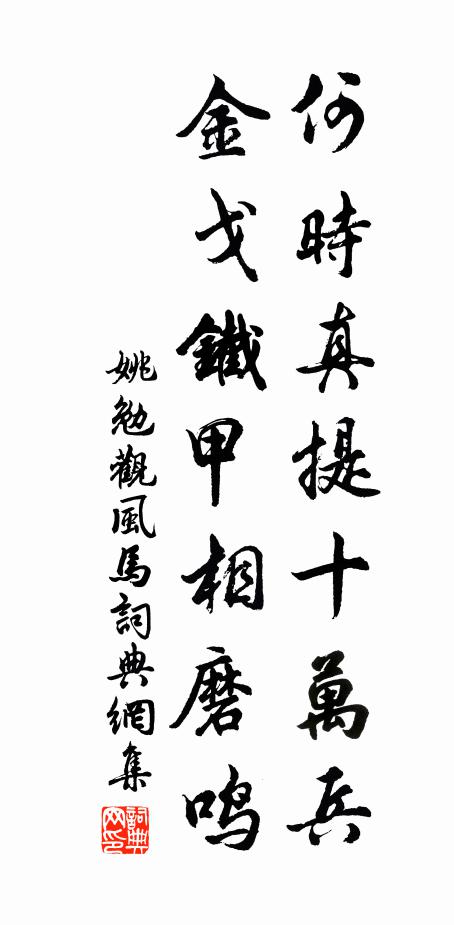 何時真提十萬兵
金戈鐵甲相磨鸣
姚勉觀風馬詞典網集
詞典
网印